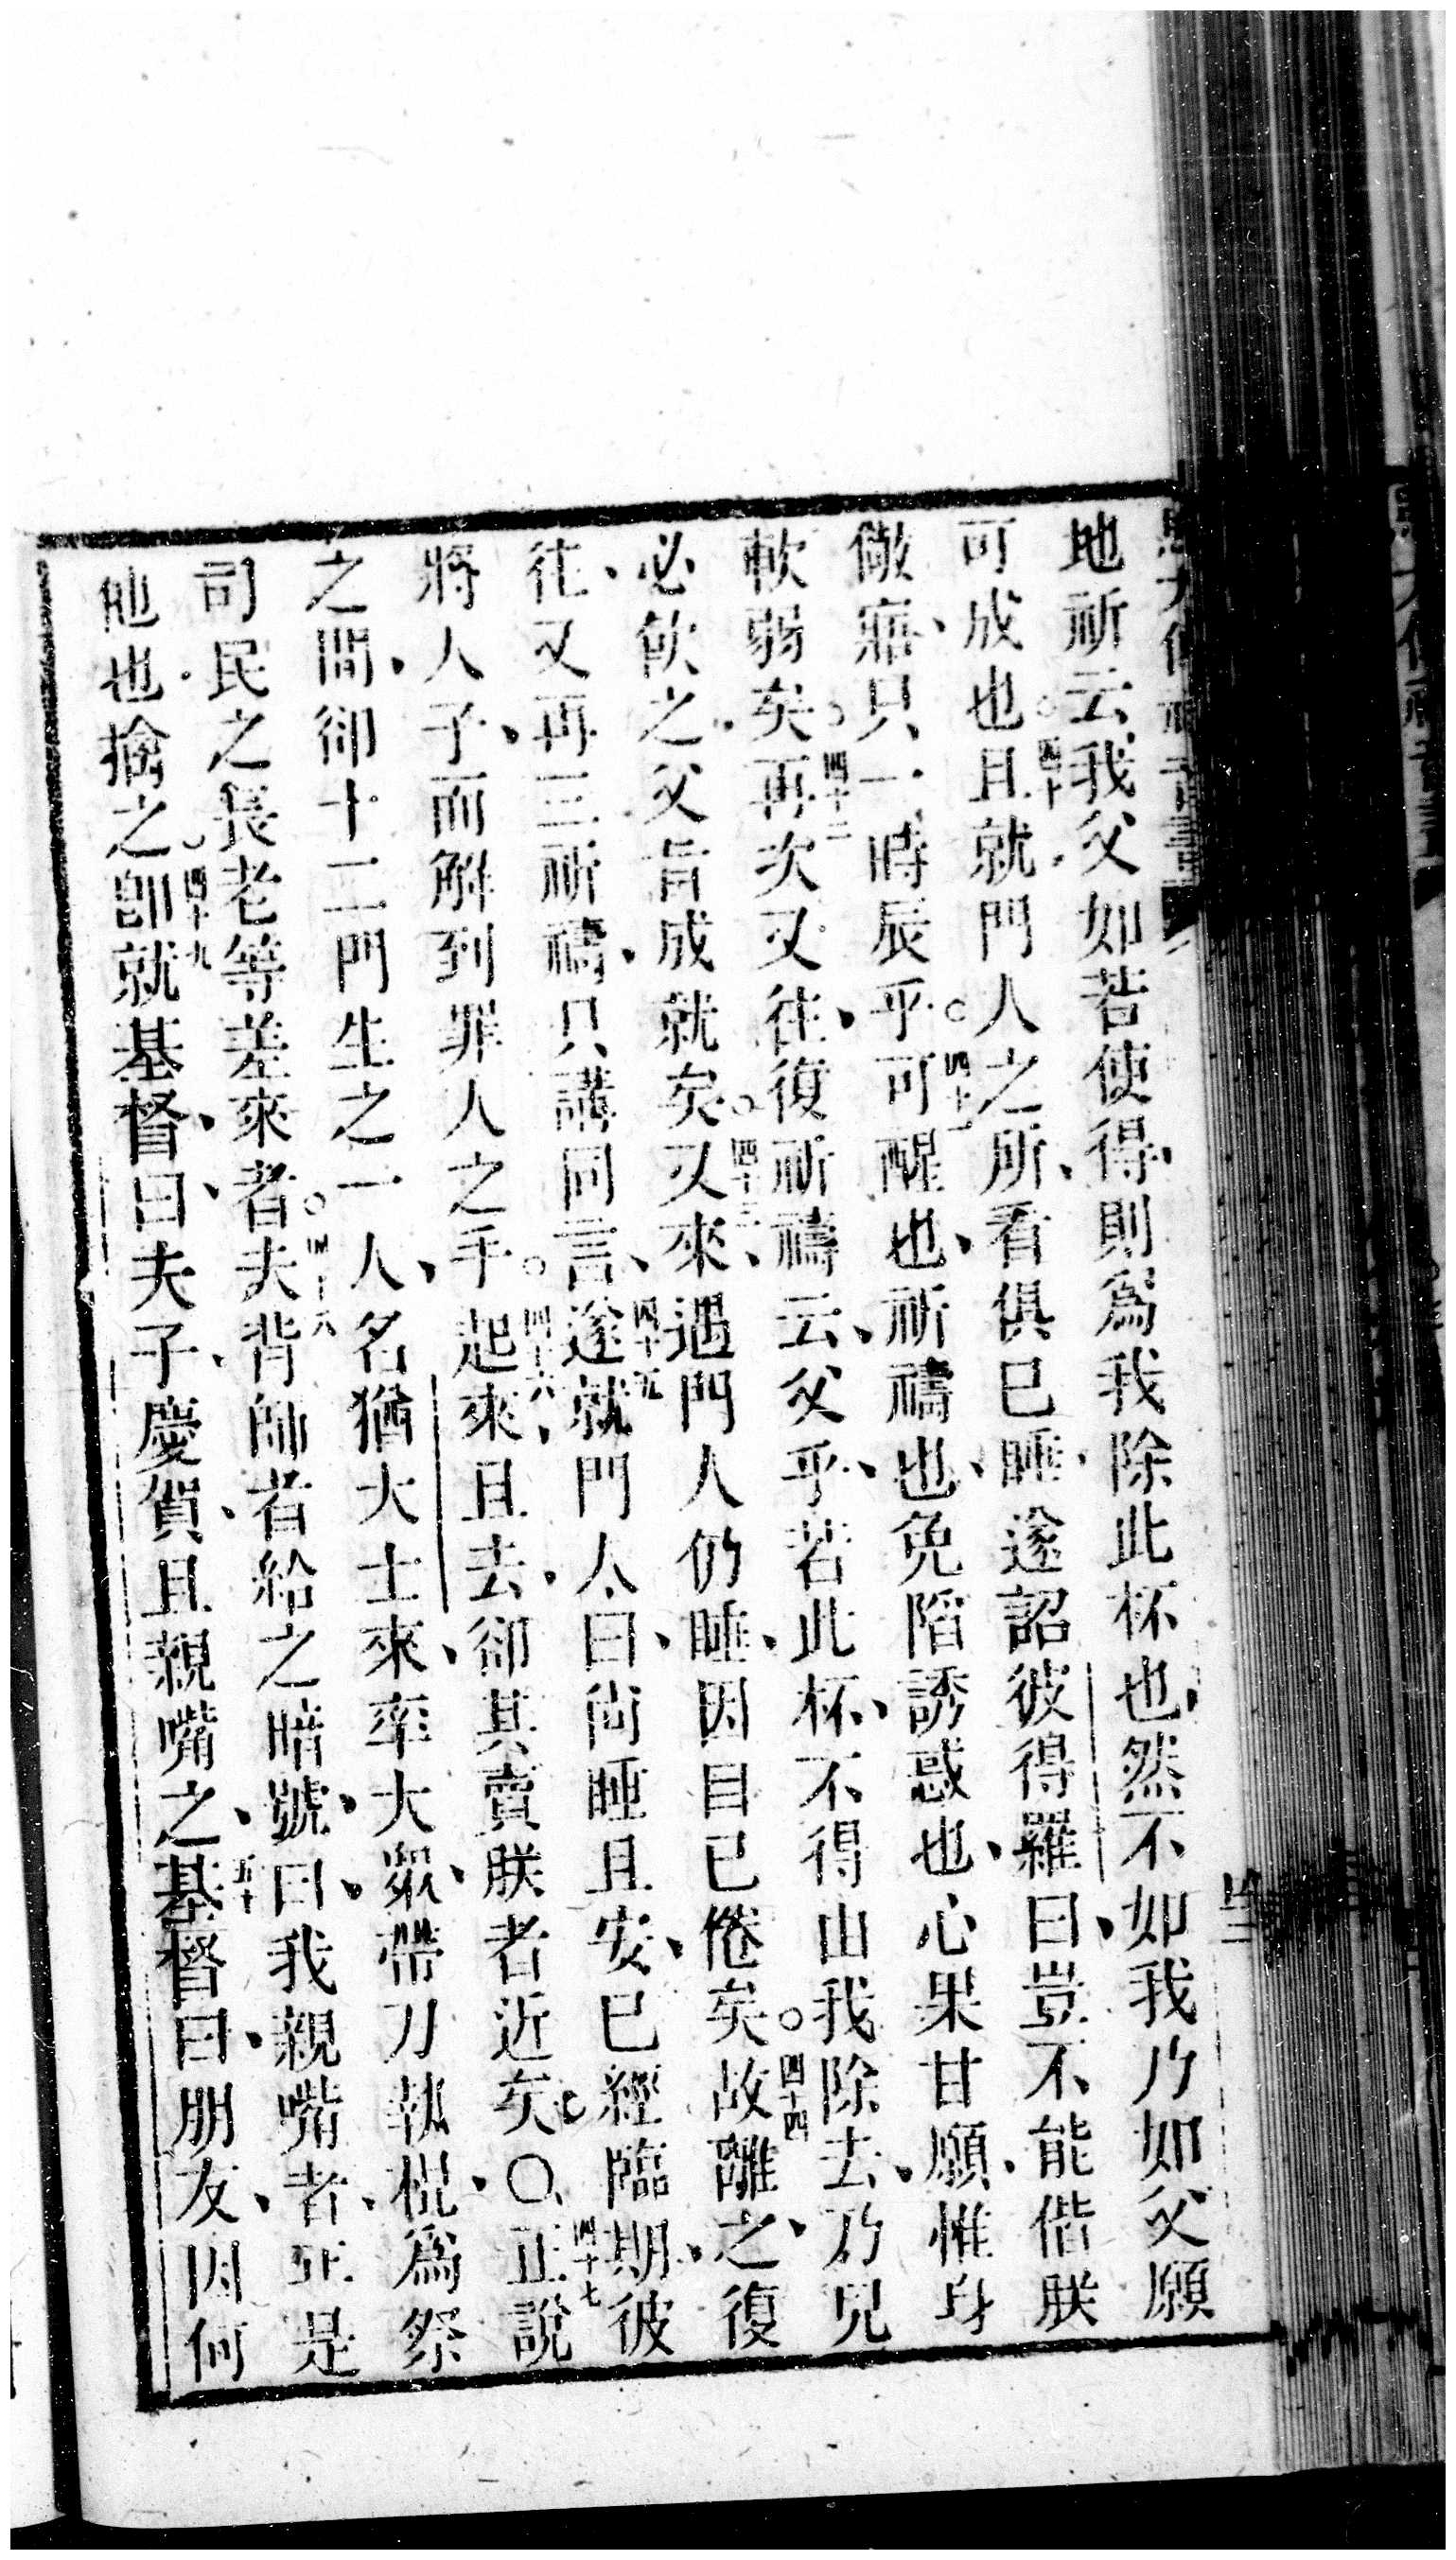 地祈云我父如若使得、則爲我除此杯也、然不如我乃如父願
可成也。四十且就門人之所、看俱已睡、遂詔彼得羅曰、豈不能偕朕
儆寤、只一時辰乎。四十一可醒也、祈禱也、免陷誘惑也、心果甘願、惟身
軟弱矣。四十二再次又往、復祈禱云、父乎、若此杯、不得由我除去、乃兒
必飲之、父旨成就矣。四十三又來、遇門人仍睡、因目已倦矣。四十四故離之、復
往、又再三祈禱、只講同言、四十五遂就門人曰、尚睡且安、已經臨期、彼
將人子、而解到罪人之手。四十六起來、且去、卻其賣朕者近矣。〇四十七正說
之間、卻十二門生之一人、名猶大士來、率大眾、帶刀執棍、爲祭
司民之長老等差來者。四十八夫背師者給之暗號、曰、我親嘴者、正是
他也、擒之。四十九卽就基督、曰、夫子、慶賀、且親嘴之、五十基督曰、朋友、因何